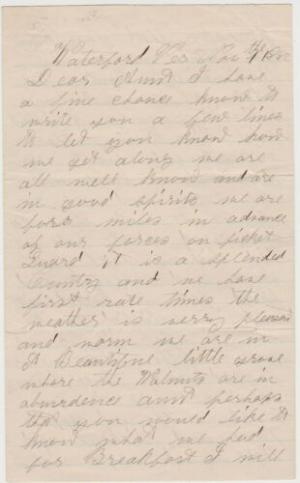 Waterford Ver Nov the
Dear Aunt I have
a fine chance know to
write you a few lines
to let you know how
we get along we are
all well know and are
in good spirits we are
four miles in advance
of our forces on picket
Guard it is a splended
Country and we have
first rate times the
weather is verry pleasant
and warm we are in
A Beautiful little grove
where the Walnuts are in
abundence aunt perhaps
that you would like to
know what we had
for Breakfast I will